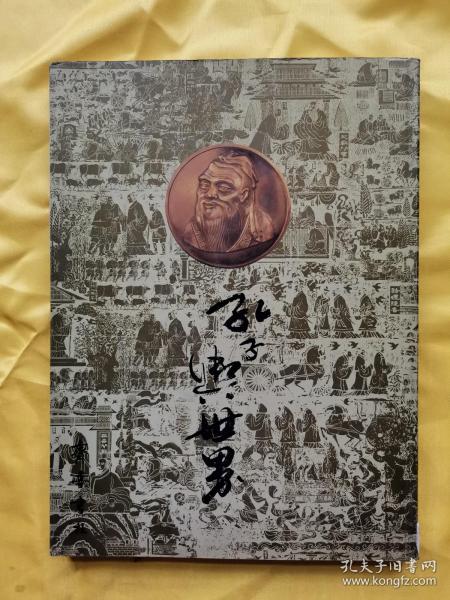 孔子與世界
齐鲁书社
孔夫子旧书网
www.kongfz.com